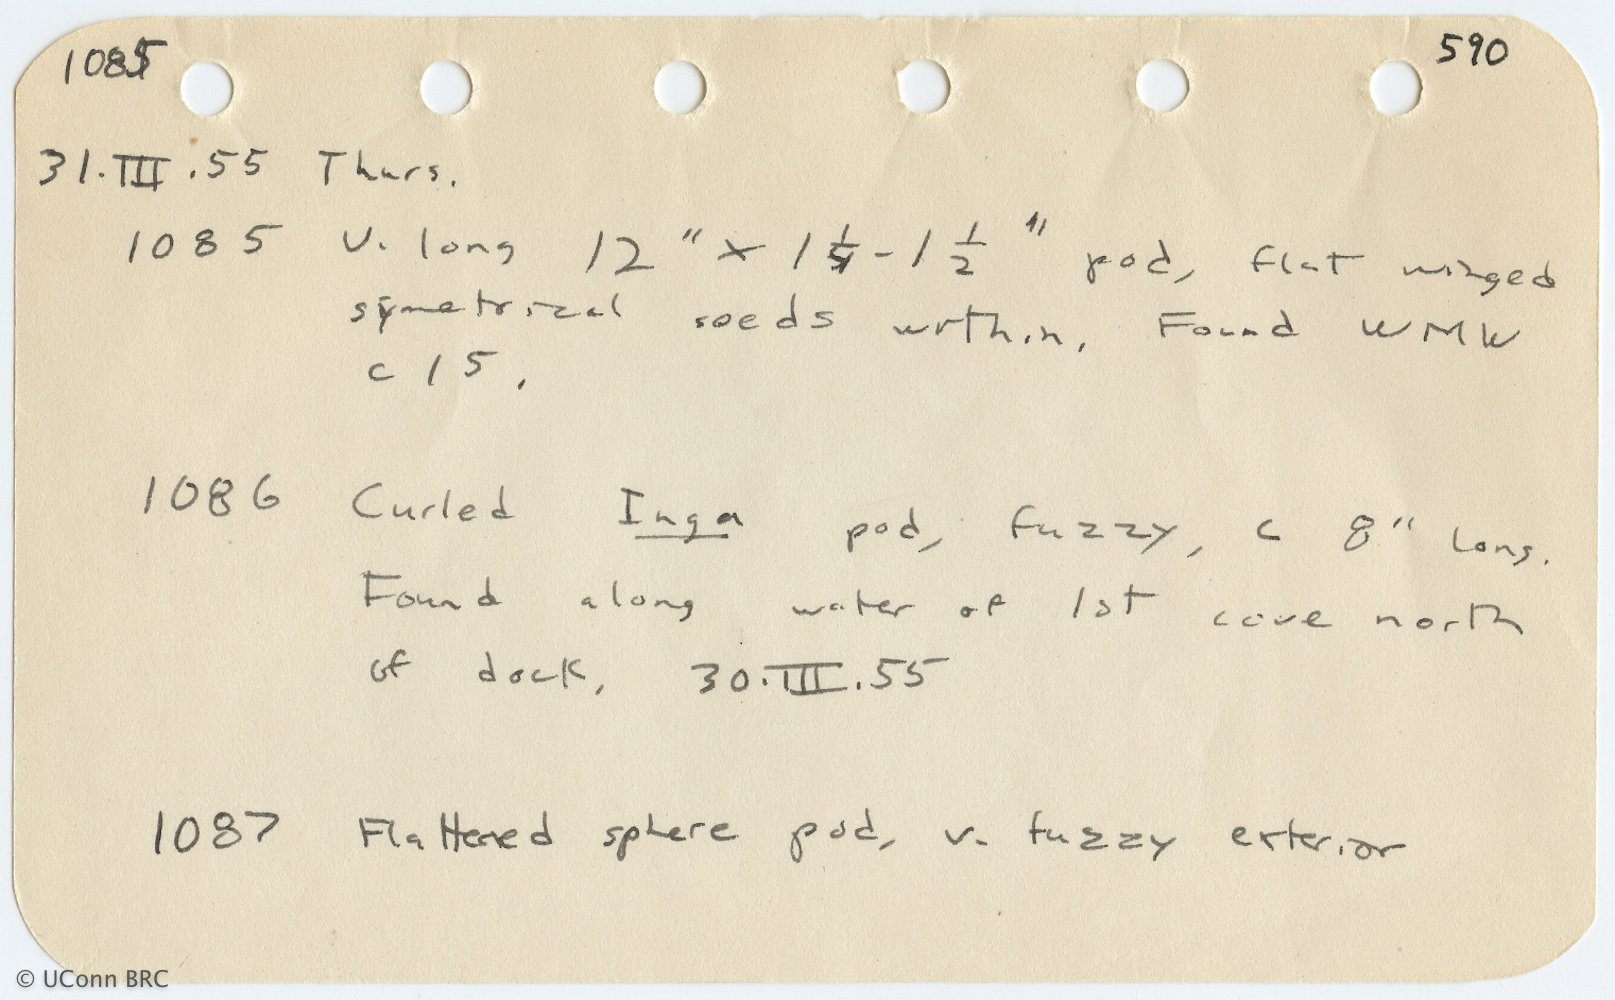 1085 590
31.III.55 Thurs.
1085 V. long 12" x 1 1/4 - 1 1/2" pod, flat winged
symetrical seeds within. Found WMW
c 15.
1086 Curled Inga pod, fuzzy, c 8" long.
Found along water of 1st cove north
of dock, 30.III.55
1087 Flattened sphere pod, v. fuzzy exterior
© UConn BRC